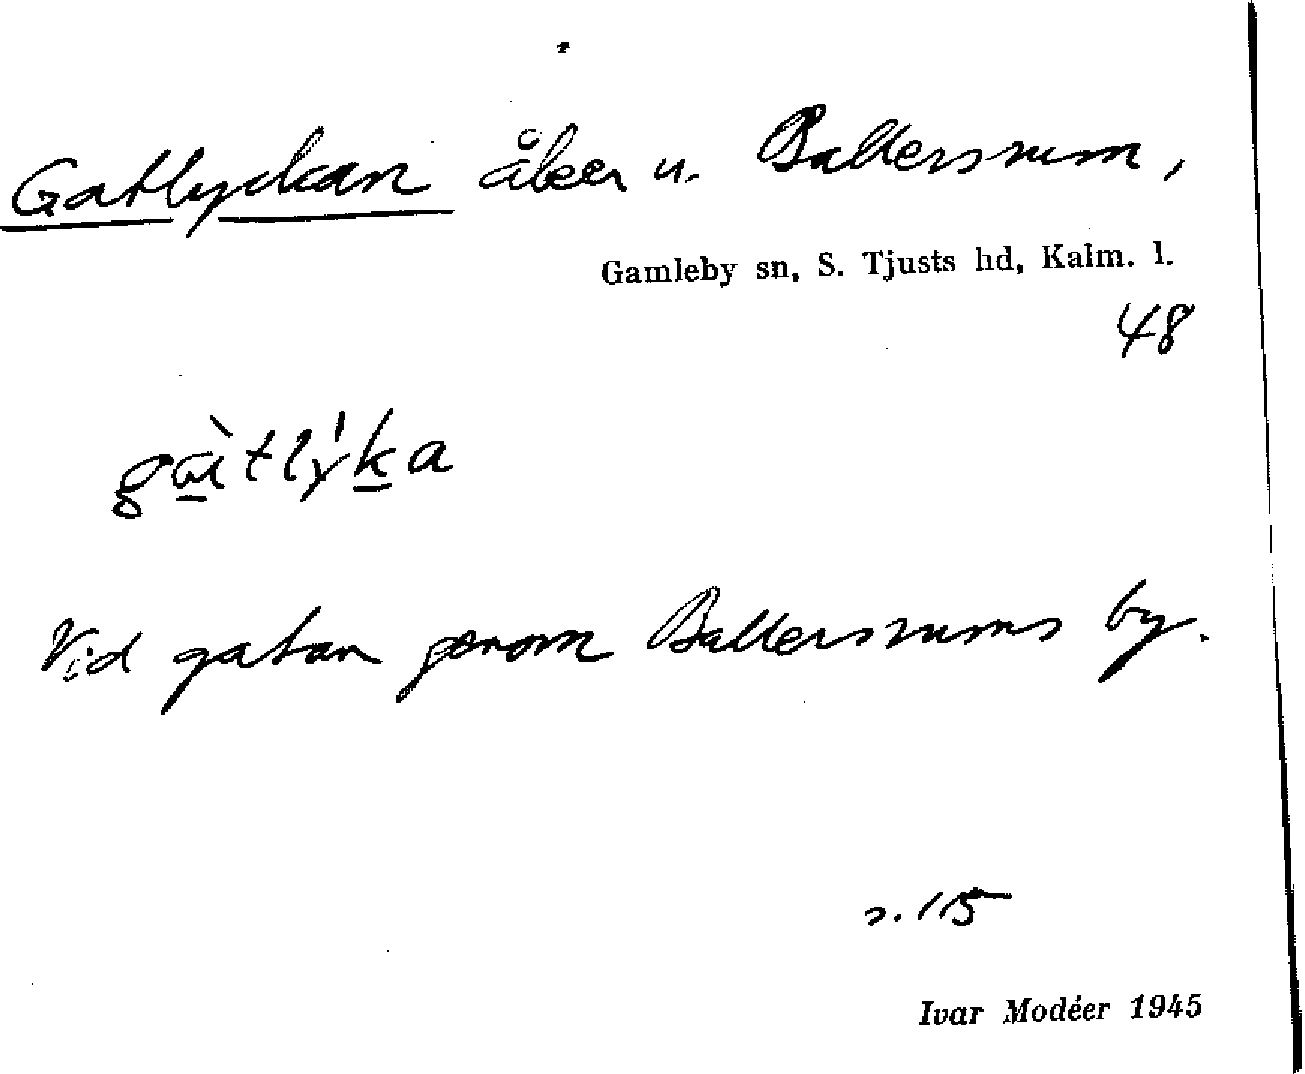 Gatlyckan åker u. Ballersrum,
Gamleby sn, S. Tjusts hd, Kalm. l.
48
Vid gatan genom Ballersrums by.
s. 115
Ivar Modéer 1945